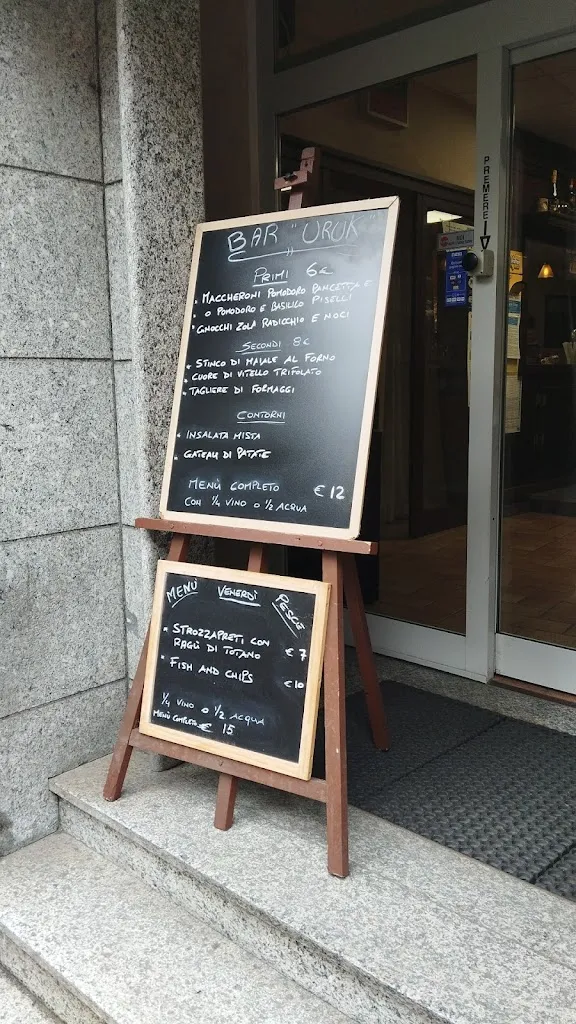 BAR "URUK"
PRIMI 6€
• MACCHERONI POMODORO PANCETTA E
O POMODORO E BASILICO PISELLI
• GNOCCHI ZOLA RADICCHIO E NOCI
SECONDI 8€
• STINCO DI MAIALE AL FORNO
• CUORE DI VITELLO TRIFOLATO
• TAGLIERE DI FORMAGGI
CONTORNI
• INSALATA MISTA
• GATEAU DI PATATE
MENÙ COMPLETO € 12
CON ¼ VINO O ½ ACQUA
MENÙ VENERDÌ PESCE
• STROZZAPRETI CON
RAGÙ DI TOTANO € 7
• FISH AND CHIPS €10
¼ VINO O ½ ACQUA
MENÙ COMPLETO € 15
PREMERE